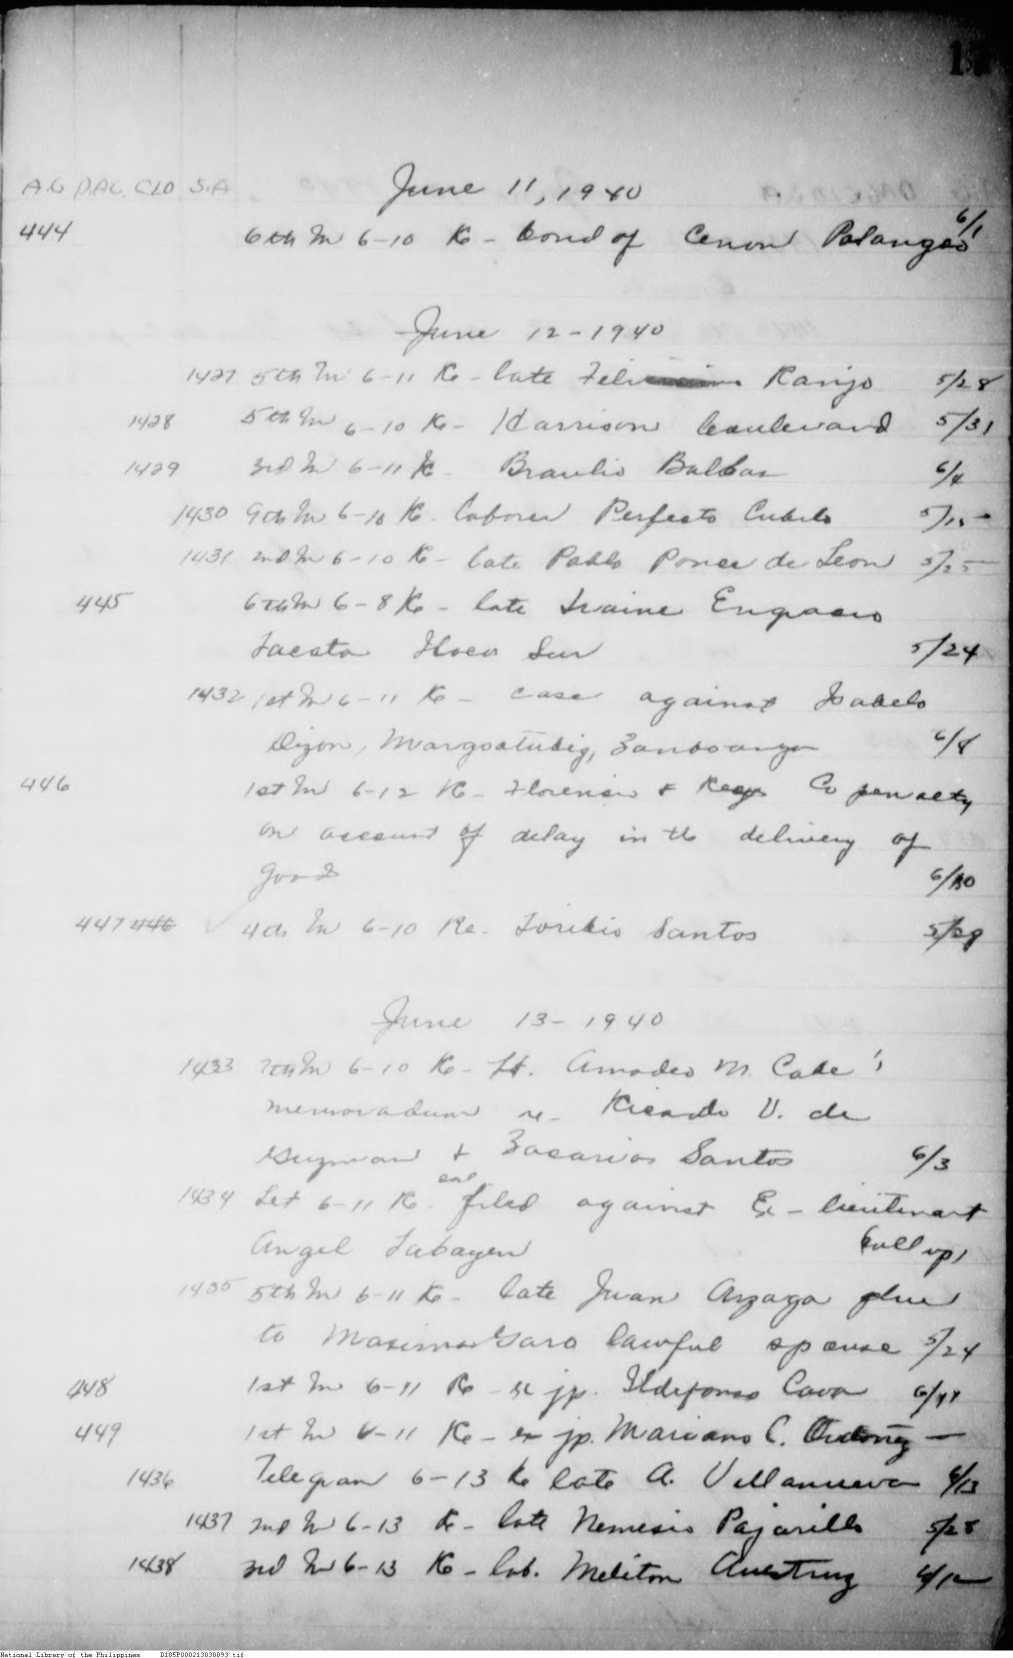 A.G D.AC. CLD S.A June 11, 1940
444 6th In 6-10 Re - bond of Cenon Palangeo 6/1
June 12-1940
1427 5th In 6-11 Re - late Ranjo 5/28
1428 5th In 6-10 Re - Harrison boulevard 5/31
1429 3rd In 6-11 Re - Braulio Balbas 6/4
1430 9th In 6-10 Re. laborer Perfecto 5/15-
1431 2nd In 6-10 Re - late Pablo Ponce de Leon 5/25-
445 6th In 6-8 Re - late
Ilocos Sur 5/24
1432 1st In 6-11 Re - case against Isabelo
Dizon, Margosatubig, Zamboanga 6/8
446 1st In 6-12 Re - & Co penalty
on account of delay in the delivery of
goods 6/10
447 446 4th In 6-10 Re. Toribio Santos 5/29
June 13-1940
1433 7th In 6-10 Re - Lt. Amadeo M. Cabe's
memoradum re - Ricardo V. de
Guzman & Zacarias Santos 6/3
1434 Let 6-11 Re. filed against Ex-lieutenant
Angel Tabayen
1435 5th In 6-11 Re - late Juan Arzaga
to Maxima Garo lawful spouse 5/24
448 1st In 6-11 Re - ex jp. Ildefonso Cava 6/11
449 1st In 6-11 Re - ex jp. Mariano C. Ordoñez -
1436 Telegram 6-13 Re late A. Villanueva 6/13
1437 2nd In 6-13 Re - late Nemesio Pajarillo 5/28
1438 3rd In 6-13 Re - lab. Meliton 6/12
National Library of the Philippines D185P000213030093.tif